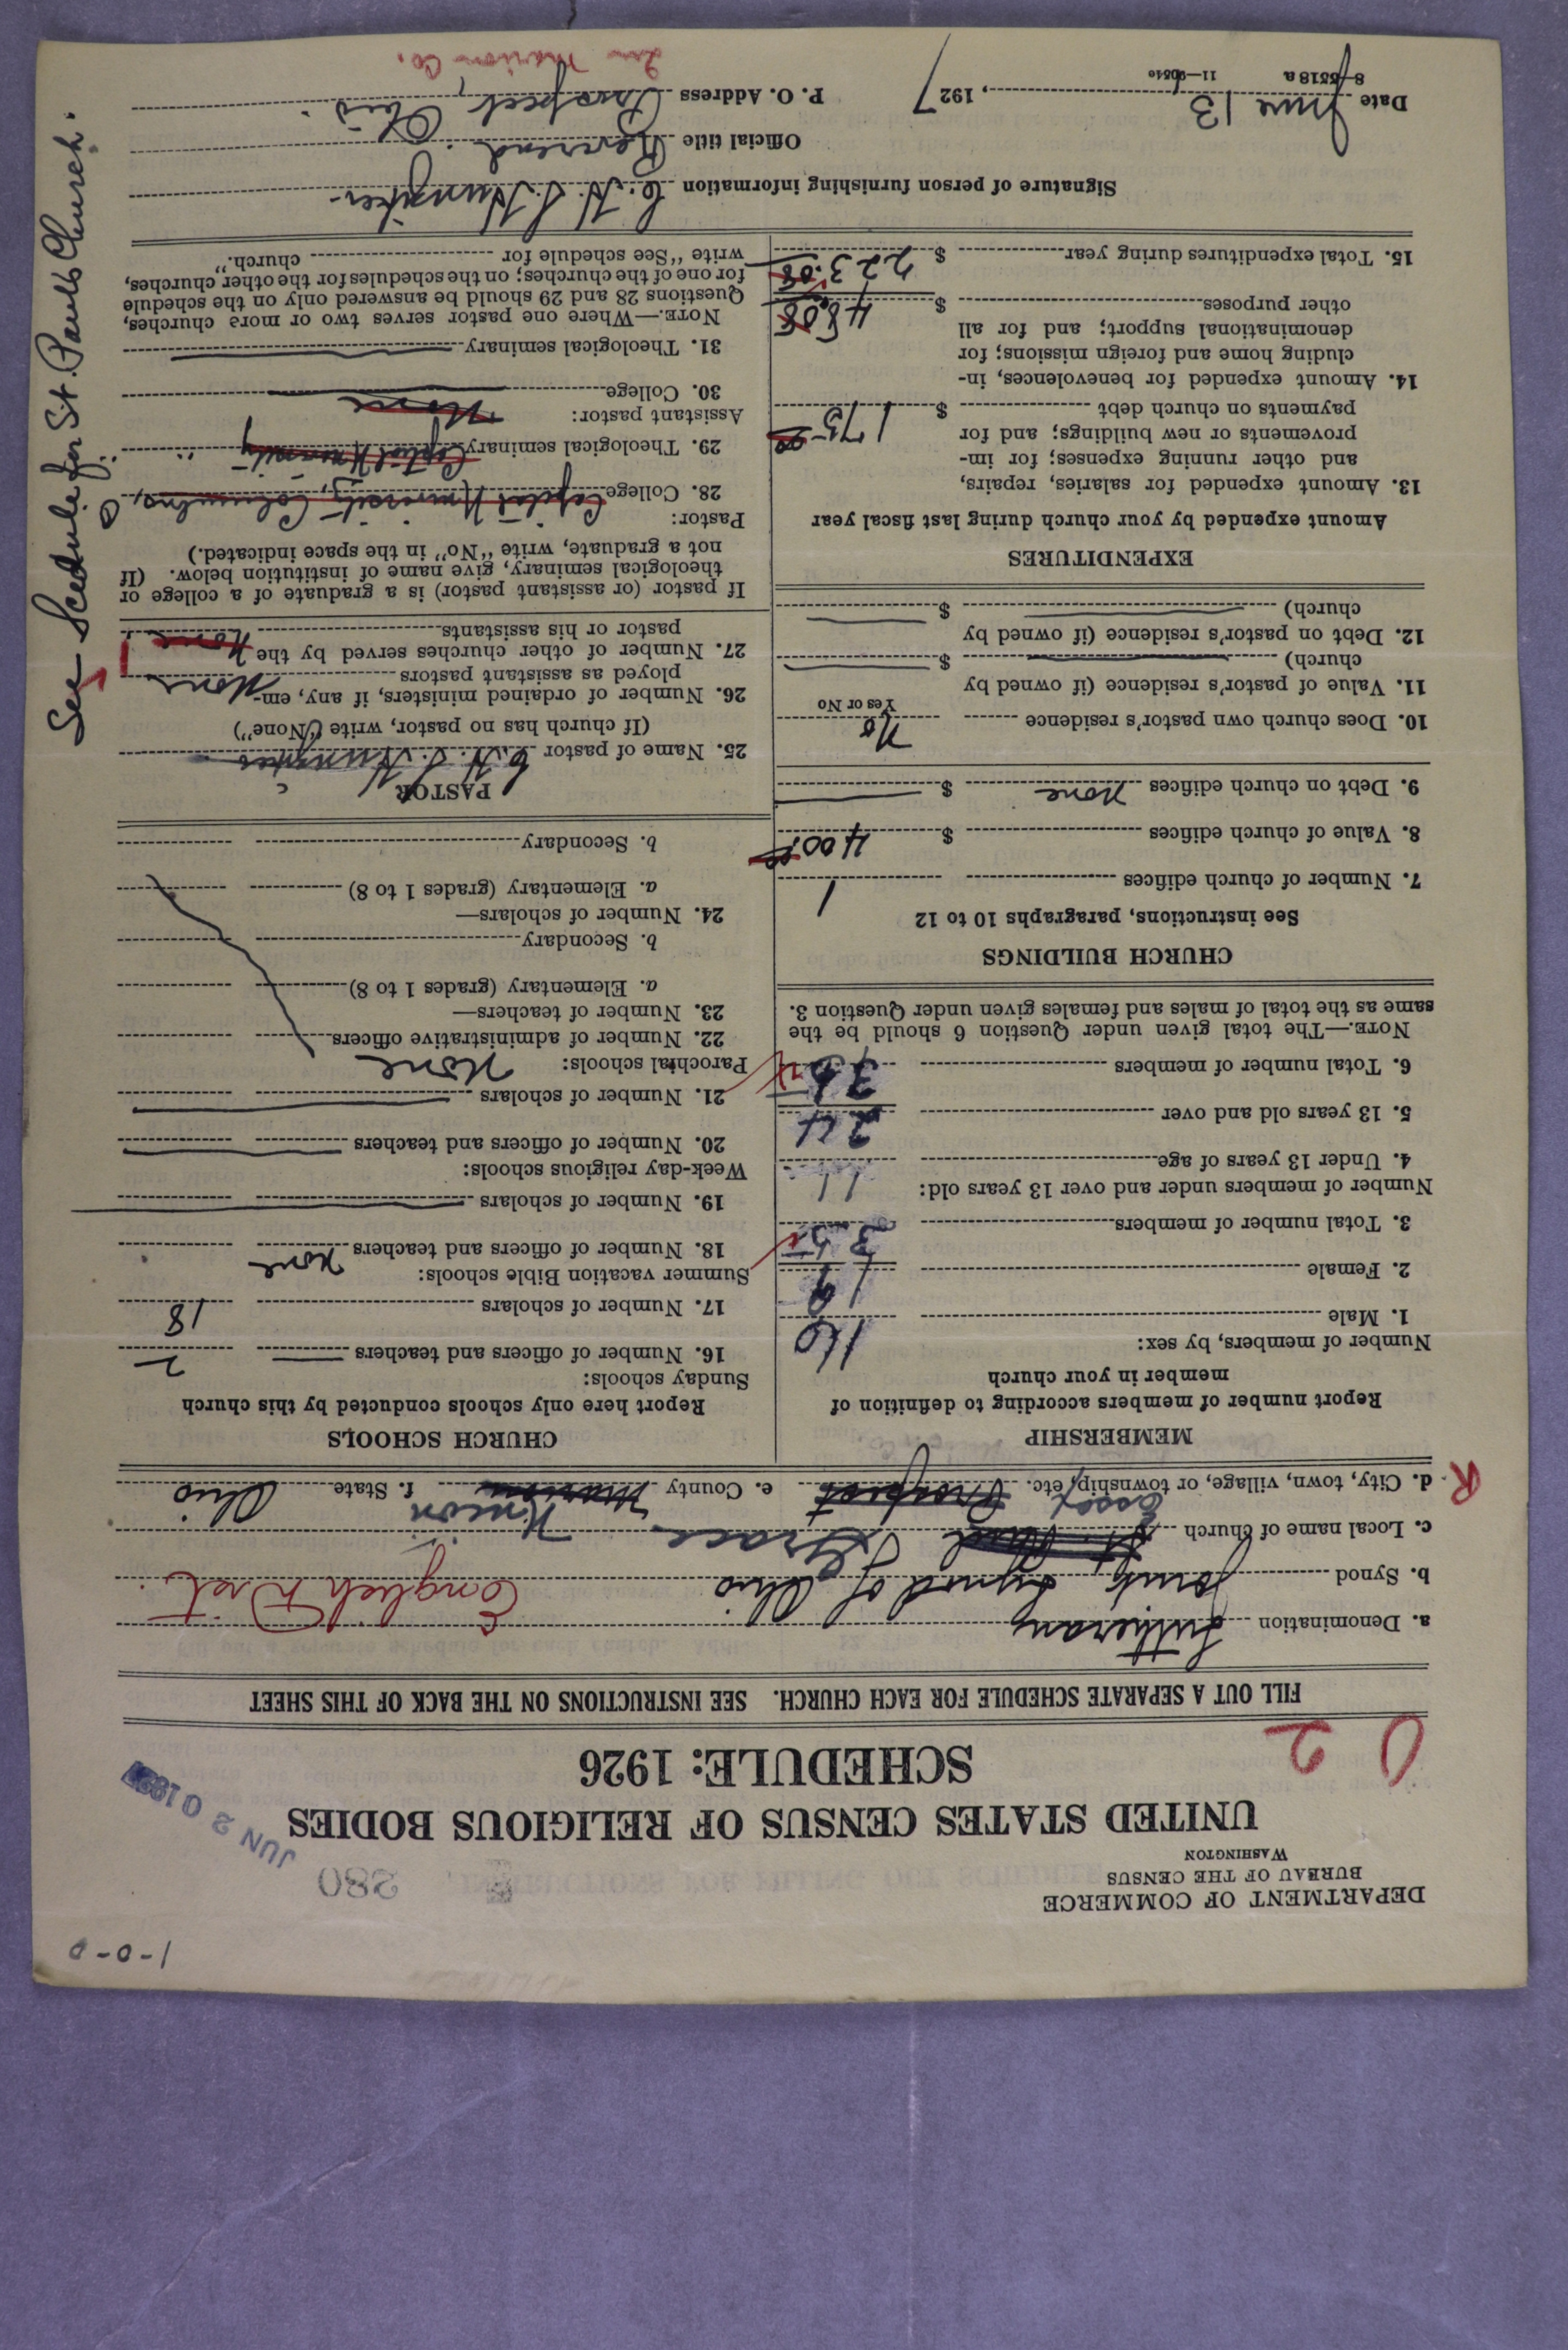 1-0-0
DEPARTMENT OF COMMERCE
BUREAU OF THE CENSUS
WASHINGTON
280
JUN 20 1927
UNITED STATES CENSUS OF RELIGIOUS BODIES
SCHEDULE: 1926
0 2
FILL OUT A SEPARATE SCHEDULE FOR EACH CHURCH. SEE INSTRUCTIONS ON THE BACK OF THIS SHEET
a. Denomination Lutheran
b. Synod Joint Synod of Ohio English Dist.
c. Local name of church St. Paul Grace
d. City, town, village, or township, etc. Prospect Essex e. County Marion Union f. State Ohio
R
MEMBERSHIP
Report number of members according to definition of
member in your church
Number of members, by sex:
1. Male 16
2. Female 19
3. Total number of members 35
Number of members under and over 13 years old:
4. Under 13 years of age 11
5. 13 years old and over 24
6. Total number of members 35
NOTE.—The total given under Question 6 should be the
same as the total of males and females given under Question 3.
CHURCH BUILDINGS
See instructions, paragraphs 10 to 12
7. Number of church edifices 1
8. Value of church edifices $ 400.00
9. Debt on church edifices None $
10. Does church own pastor's residence No
Yes or No
11. Value of pastor's residence (if owned by
church) $
12. Debt on pastor's residence (if owned by
church) $
EXPENDITURES
Amount expended by your church during last fiscal year
13. Amount expended for salaries, repairs,
and other running expenses; for im-
provements or new buildings; and for
payments on church debt $ 175.00
14. Amount expended for benevolences, in-
cluding home and foreign missions; for
denominational support; and for all
other purposes $ 48.08
15. Total expenditures during year $ 223.08
CHURCH SCHOOLS
Report here only schools conducted by this church
Sunday schools:
16. Number of officers and teachers 2
17. Number of scholars 18
Summer vacation Bible schools:
18. Number of officers and teachers None
19. Number of scholars
Week-day religious schools:
20. Number of officers and teachers
21. Number of scholars
Parochial schools: None
22. Number of administrative officers
23. Number of teachers—
a. Elementary (grades 1 to 8)
b. Secondary
24. Number of scholars—
a. Elementary (grades 1 to 8)
b. Secondary
PASTOR
25. Name of pastor C. H. S. Hunziker
(If church has no pastor, write "None")
26. Number of ordained ministers, if any, em-
ployed as assistant pastors None
27. Number of other churches served by the
pastor or his assistants None 1
If pastor (or assistant pastor) is a graduate of a college or
theological seminary, give name of institution below. (If
not a graduate, write "No" in the space indicated.)
Pastor:
28. College Capital University, Columbus, O.
29. Theological seminary Capital University " "
Assistant pastor: None
30. College
31. Theological seminary
NOTE.—Where one pastor serves two or more churches,
Questions 28 and 29 should be answered only on the schedule
for one of the churches; on the schedules for the other churches,
write "See schedule for church."
See Scedule for St. Pauls Church.
Signature of person furnishing information C. H. S. Hunziker
Official title Reverend
Date June 13, 1927 P. O. Address Prospect, Ohio.
In Marion Co.